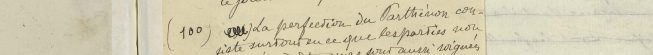 (100) La perfection du Parthénon con-
siste surtout en ce que les parties non
sont aussi soignées